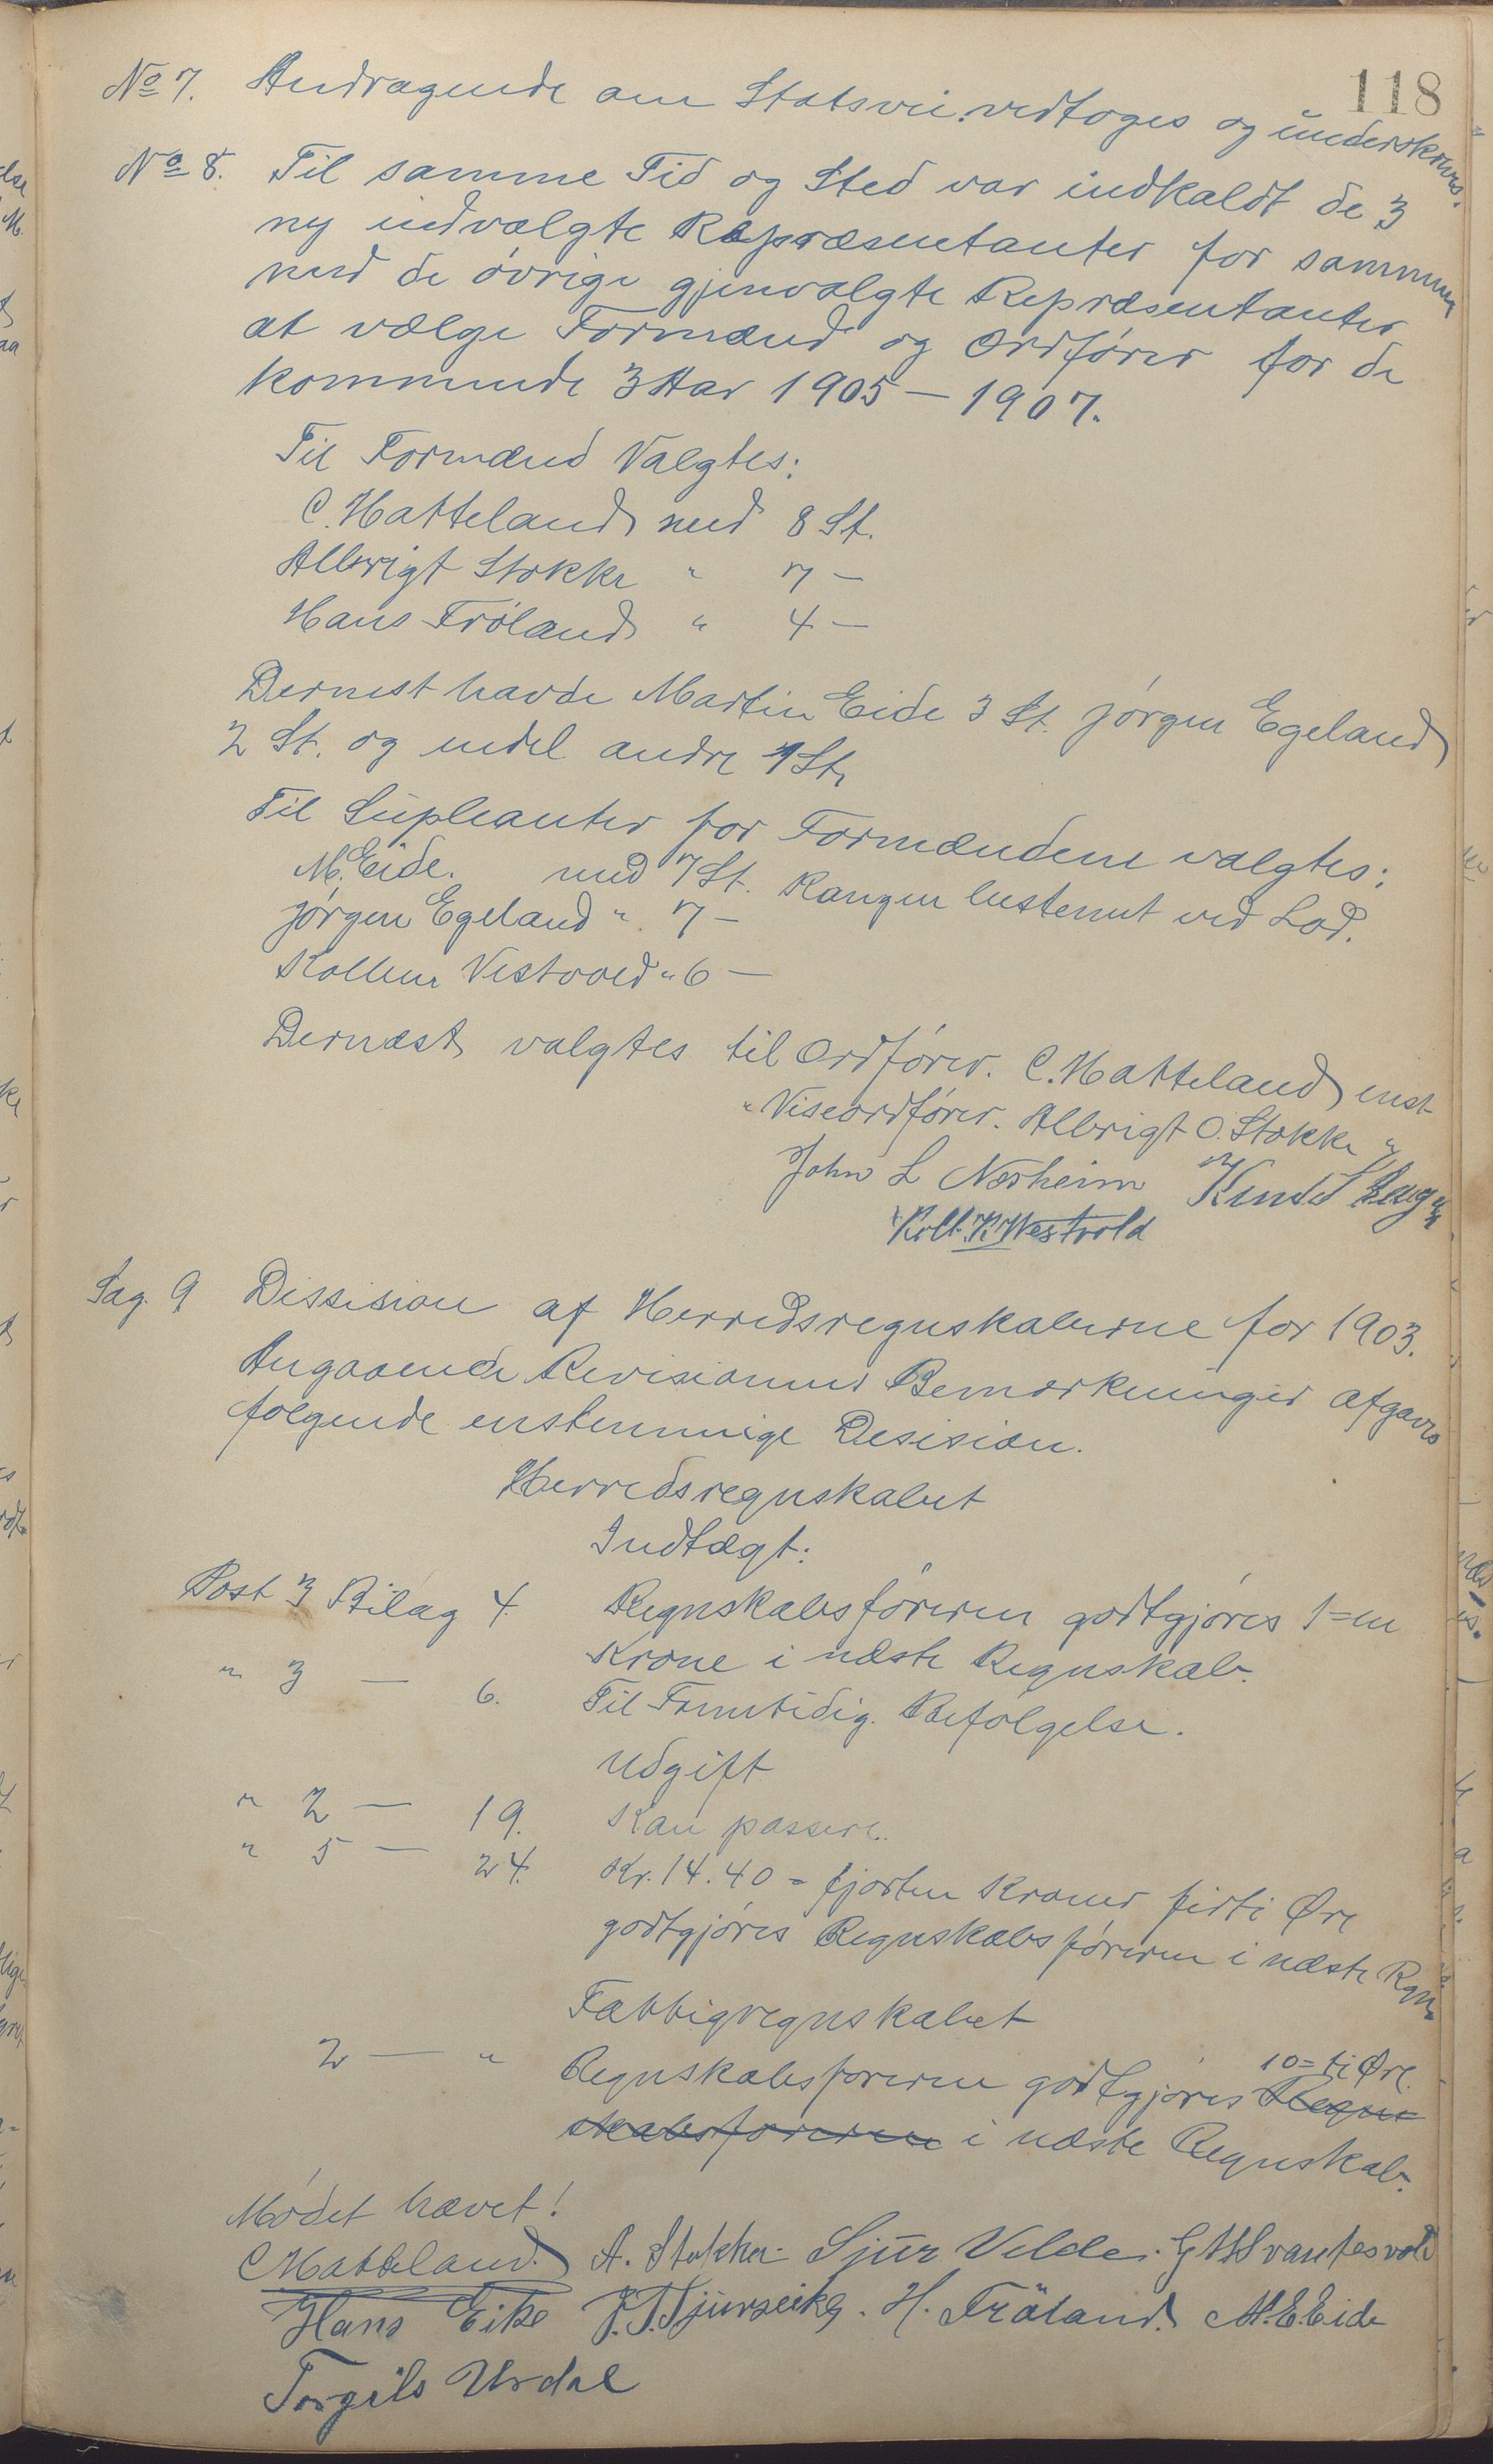 118
No 7. Andragende om Statsvei vedtoges og underskrevs.
No 8. Til samme Tid og Sted var indkaldt de 3
ny indvalgte Repræsentanter for sammen
med de øvrige gjenvalgte Repræsentanter
at vælge Formænd og Ordfører for de
kommende 3 Aar 1905 – 1907.
Til Formænd Valgtes:
C. Hatteland med 8 St.
Albrigt Stokke " 7 –
Hans Frøland " 4 –
Dernest havde Martin Eide 3 St. Jørgen Egeland
2 St. og endel andre 1 St.
Til Supleanter for Formændene valgtes:
M. Eide. med 7 St. Rangen bestemt ved Lod.
Jørgen Egeland " 7 –
Kolben Vestvold " 6 –
Dernæst valgtes til Ordfører. C. Hatteland enst
" Viseordfører. Albrigt O. Stokke "
John L Nærheim Knud
Kolb. K. Westvold
Sag. 9 Dissision af Herredsregnskaberne for 1903.
Angaaende Revisionens Bemærkninger afgaves
følgende enstemmige Desision.
Herredsregnskabet
Indtægt:
Post 3 Bilag 4. Regnskabsføreren godtgjøres 1 = en
Krone i næste Regnskab.
" 3 — 6. Til Fremtidig. Befølgelse.
Udgift
" 2 — 19. Kan passere.
" 5 — 24. Kr. 14.40 = fjorten Kroner firti Øre
godtgjøres Regnskabsføreren i næste Regn.
Fattigregnskabet
2 — " Regnskabsføreren godtgjøres 10 = ti Øre. Regn=
skabsføreren i næste Regnskab.
Mødet hævet!
C Hatteland. A. Stokke Sjur Velde. G H Svantesvold
Hans Eike J. T. Tjurseike. H. Frøland. M. E. Eide
Torgils Urdal